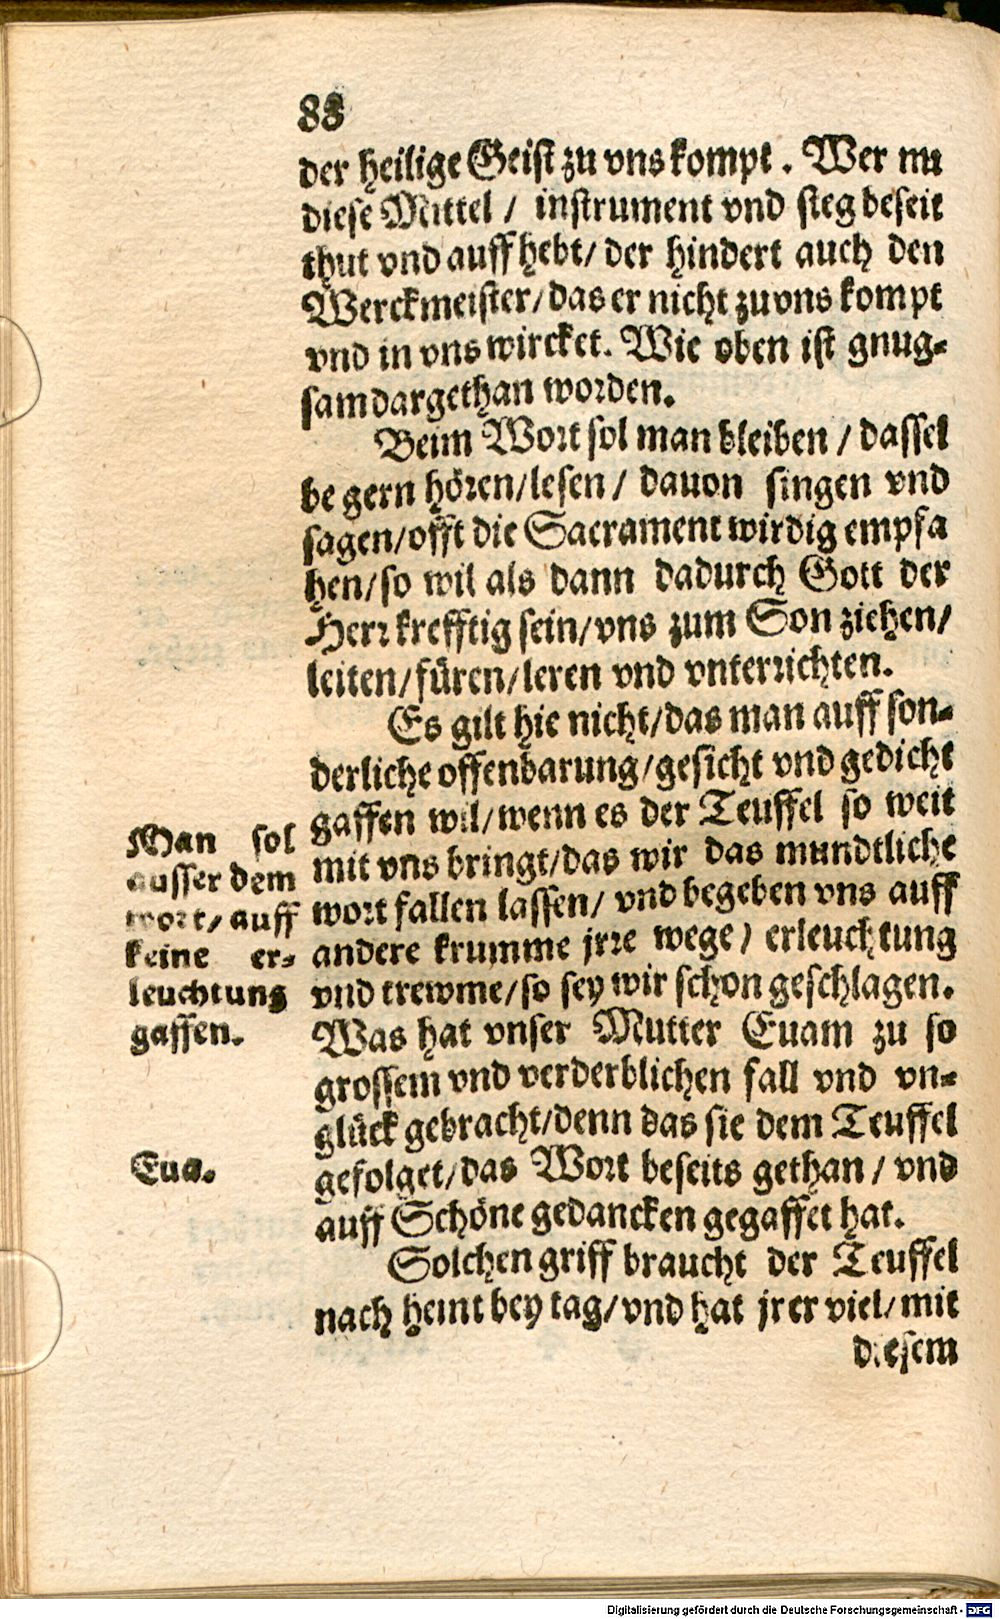 88
der heilige Geist zu vns kompt. Wer nu
diese Mittel / instrument vnd steg beseit
thut vnd auff hebt/ der hindert auch den
Werckmeister/das er nicht zu vns kompt
vnd in vns wircket. Wie oben ist gnug-
sam dargethan worden.
Beim Wort sol man bleiben / dassel
be gern hören/lesen/ dauon singen vnd
sagen/offt die Sacrament wirdig empfa
hen/so wil als dann dadurch Gott der
Herr krefftig sein/vns zum Son ziehen/
leiten/füren/leren vnd vnterrichten.
Es gilt hie nicht/das man auff son-
derliche offenbarung/gesicht vnd gedicht
gaffen wil/wenn es der Teuffel so weit
mit vns bringt/das wir das mundtliche
wort fallen lassen/ vnd begeben vns auff
andere krumme jrre wege/ erleuchtung
vnd trewme/so sey wir schon geschlagen.
Was hat vnser Mutter Euam zu so
grossem vnd verderblichen fall vnd vn-
glück gebracht/denn das sie dem Teuffel
gefolget/das Wort beseits gethan / vnd
auff Schöne gedancken gegaffet hat.
Solchen griff braucht der Teuffel
nach heint bey tag/vnd hat jrer viel/mit
diesem
Man sol
ausser dem
wort/auff
keine er-
leuchtung
gaffen.
Eua.
Digitalisierung gefördert durch die Deutsche Forschungsgemeinschaft - DFG